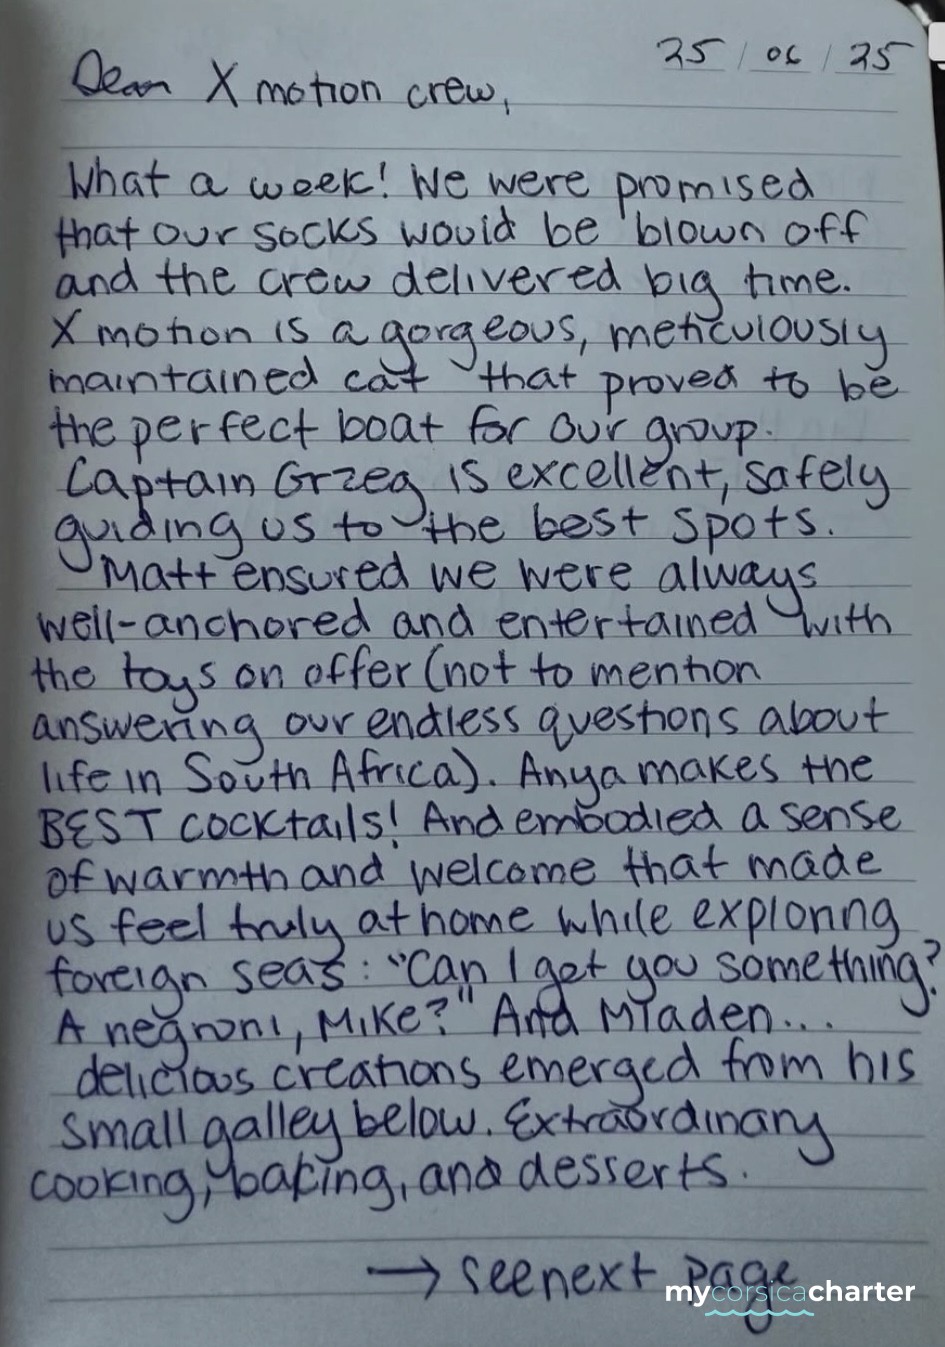 25 / 06 / 25
Dear X motion crew,
What a week! We were promised
that our socks would be blown off
and the crew delivered big time.
X motion is a gorgeous, meticulously
maintained cat that proved to be
the perfect boat for our group.
Captain Grzeg is excellent, safely
guiding us to the best spots.
Matt ensured we were always
well-anchored and entertained with
the toys on offer (not to mention
answering our endless questions about
life in South Africa). Anya makes the
BEST cocktails! And embodied a sense
of warmth and welcome that made
us feel truly at home while exploring
foreign seas: "Can I get you something?
A negroni, Mike?" And Mladen...
delicious creations emerged from his
small galley below. Extraordinary
cooking, baking, and desserts.
→ see next page
mycorsicacharter